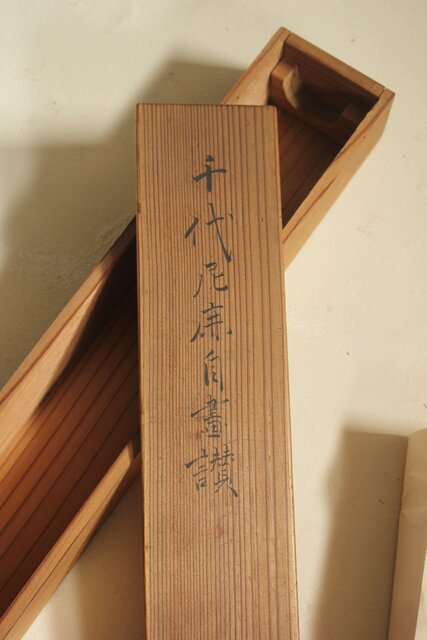 千代尼自畫讃